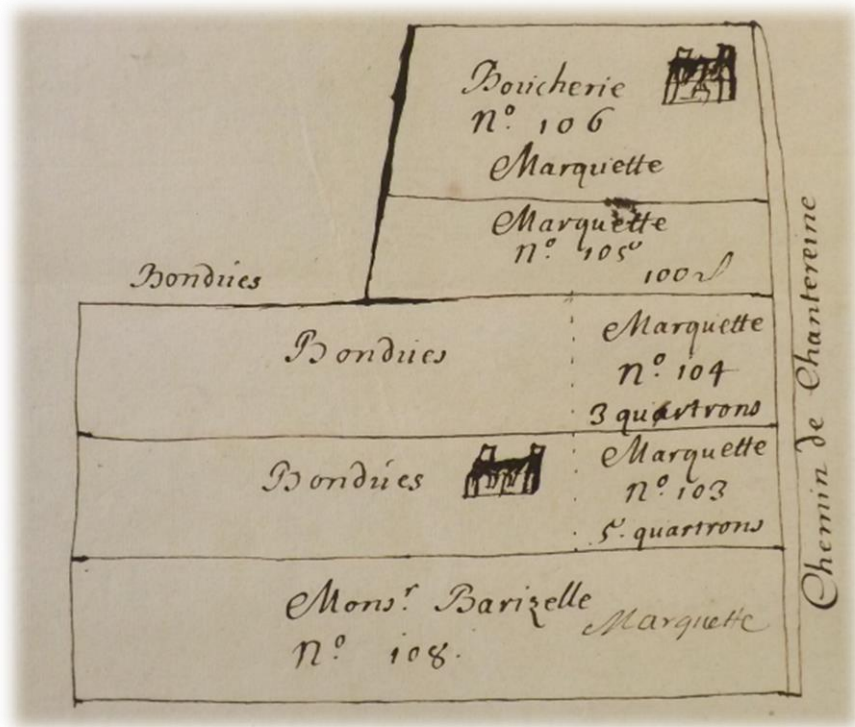 Boucherie
N.º 106
Marquette
Marquette
N.º 105
100
Bondües
Bondües
Marquette
N.º 104
3 quartrons
Bondües
Marquette
N.º 103
5. quartrons
Monsʳ. Barizelle
Marquette
N.º 108.
Chemin de Chantereine